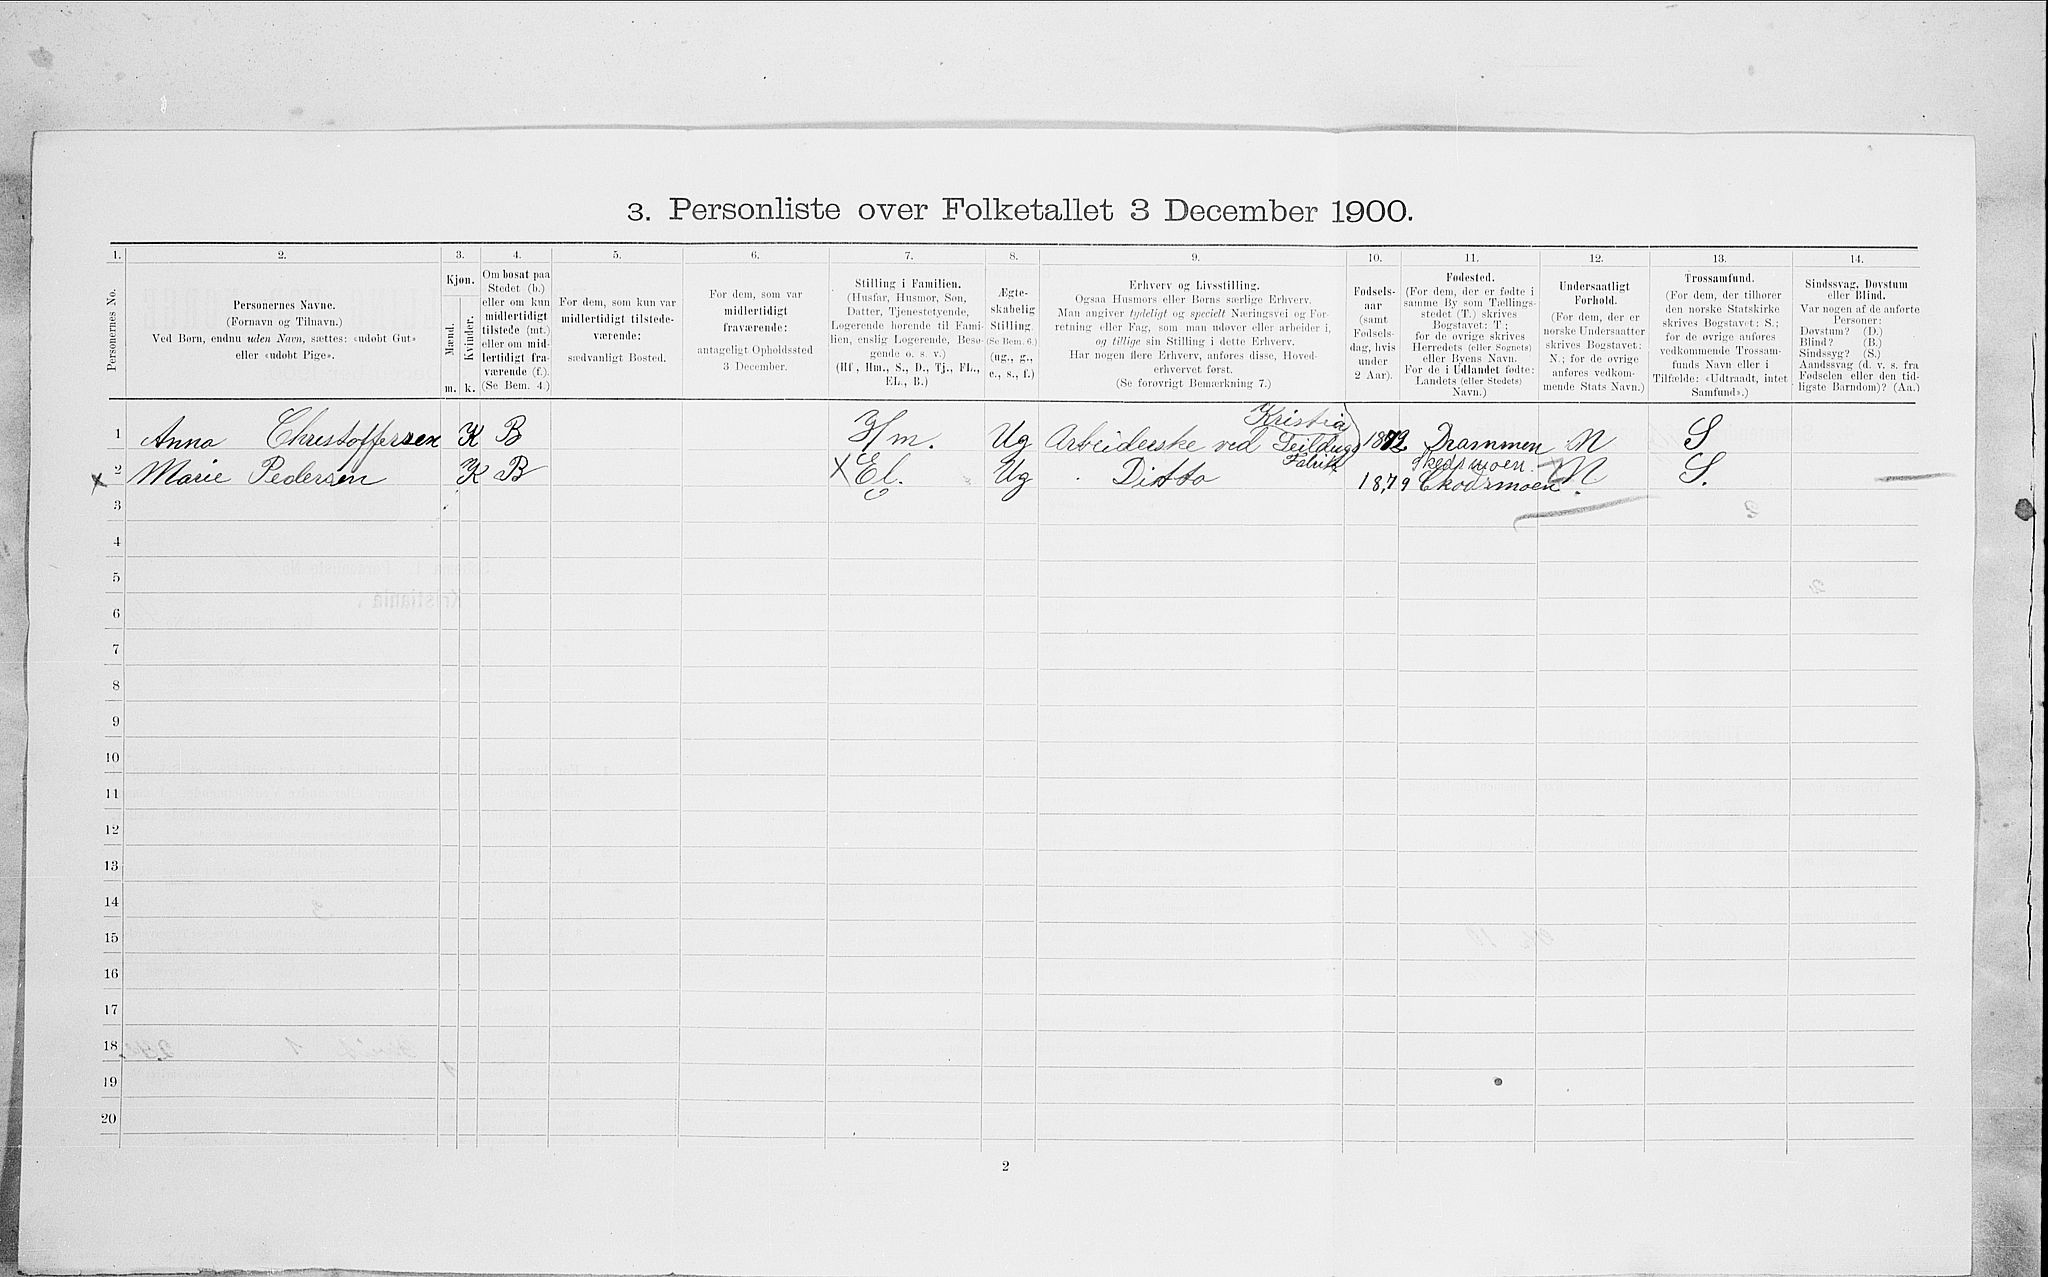 3. Personliste over Folketallet 3 December 1900.
1. 2. 3. 4. 5. 6. 7. 8. 9. 10. 11. 12. 13. 14.
Personernes No.
Personernes Navne.
(Fornavn og Tilnavn.)
Ved Børn, endnu uden Navn, sættes: «udøbt Gut»
eller «udøbt Pige».
Kjøn.
Mænd.
Kvinder.
m. k.
Om bosat paa
Stedet (b.)
eller om kun
midlertidigt
tilstede (mt.)
eller om mid-
lertidigt fra-
værende (f.).
(Se Bem. 4.)
For dem, som kun var
midlertidigt tilstede-
værende:
sædvanligt Bosted.
For dem, som var
midlertidigt
fraværende:
antageligt Opholdssted
3 December.
Stilling i Familien.
(Husfar, Husmor, Søn,
Datter, Tjenestetyende,
Logerende hørende til Fami-
lien, enslig Logerende, Besø-
gende o. s. v.)
(Hf, Hm., S., D., Tj., FL.,
EL., B.)
Ægte-
skabelig
Stilling.
(Se Bem. 6.)
(ug., g.,
e., s., f.)
Erhverv og Livsstilling.
Ogsaa Husmors eller Børns særlige Erhverv.
Man angiver tydeligt og specielt Næringsvei og For-
retning eller Fag, som man udøver eller arbeider i,
og tillige sin Stilling i dette Erhverv.
Har nogen flere Erhverv, anføres disse, Hoved-
erhvervet først.
(Se forøvrigt Bemerkning 7.)
Fødsels-
aar
(samt
Fødsels-
dag, hvis
under
2 Aar).
Fødested.
(For dem, der er fødte i
samme By som Tællings-
stedet (T.) skrives
Bogstavet: T;
for de øvrige skrives
Herredets (eller Sognets)
eller Byens Navn.
For de i Udlandet fødte:
Landets (eller Stedets)
Navn.)
Undersaatligt
Forhold.
(For dem, der er
norske Undersaatter
skrives Bogstavet:
N.; for de øvrige
anføres vedkom-
mende Stats Navn.)
Trossamfund.
(For dem, der tilhører
den norske Statskirke
skrives Bogstavet: S.;
for de øvrige anføres
vedkommende Trossam-
funds Navn eller i
Tilfælde: «Udtraadt, intet
Samfund».)
Sindssvag, Døvstum
eller Blind.
Var nogen af de anførte
Personer:
Døvstum? (D.)
Blind? (B.)
Sindssyg? (S.)
Aandssvag (d. v. s. fra
Fødselen eller den tid-
ligste Barndom)? (Aa.)
1 Anna Christoffersen K B Hm. Ug Arbeiderske ved Kristia Seildugs Fabrik Drammen N S
x 2 Marie Pedersen K B x El. Ug Ditto 1879 Skedsmoen. N S.
3
4
5
6
7
8
9
10
11
12
13
14
15
16
17
18
19
20
2